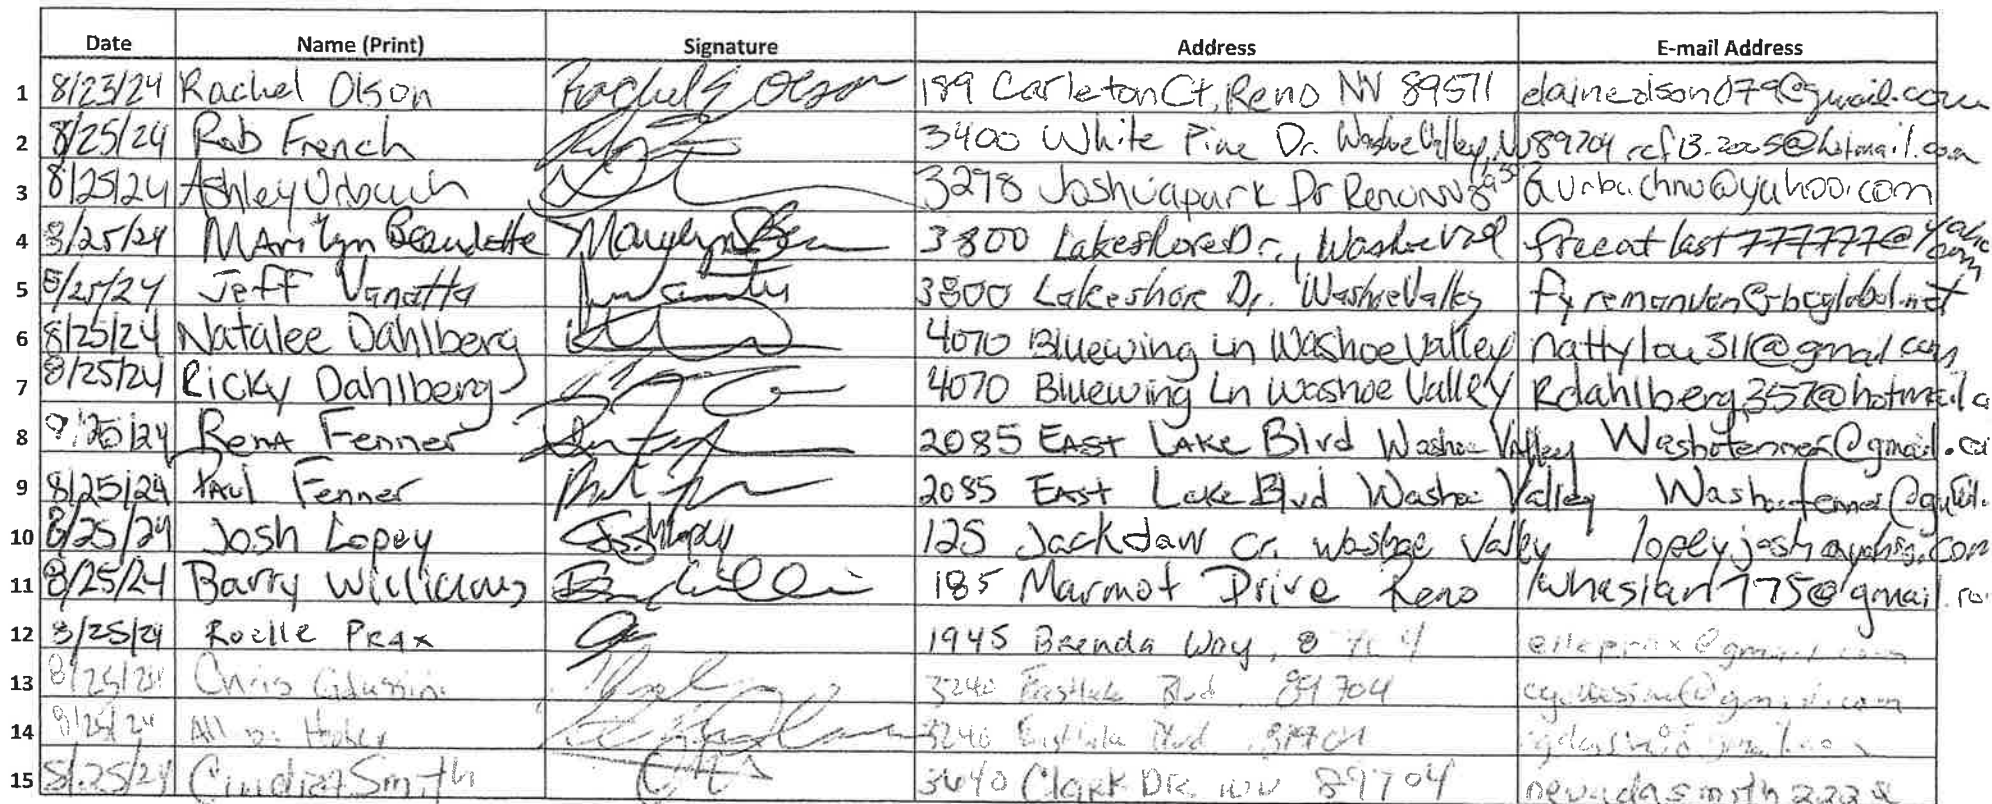 Date Name (Print) Signature Address E-mail Address
1 8/23/24 Rachel Olson Rachel E Olson 189 Carleton Ct, Reno NV 89511 elaineolson079@gmail.com
2 8/25/24 Rob French 3400 White Pine Dr. Washoe Valley, NV 89704 rcf13.2005@hotmail.com
3 8/25/24 Ashley Urbach 3278 Joshuapark Dr Reno NV
4 8/25/24 Marilyn 3800 Lakeshore Dr., Washoe freeatlast777777@yahoo.com
5 8/25/24 Jeff Vanatta 3800 Lakeshore Dr. Washoe Valley fyremanvan@sbcglobal.net
6 8/25/24 Natalee Dahlberg 4070 Bluewing Ln Washoe Valley nattylou311@gmail.com
7 8/25/24 Ricky Dahlberg 4070 Bluewing Ln Washoe Valley Rdahlberg357@hotmail.c
8 8/25/24 Rena Fenner 2085 East Lake Blvd Washoe Valley
9 8/25/24 Paul Fenner 2085 East Lake Blvd Washoe Valley
10 8/25/24 Josh Lopey Josh Lopey 125 Jackdaw Cr. Washoe Valley
11 8/25/24 Barry Williams 185 Marmot Drive Reno
12 8/25/24 Roelle Prax 1945 Brenda Way,
13 8/25/24 Chris 3240 Eastlake Blvd 89704
14 8/25/24 3240 Eastlake Blvd 89704
15 8/25/24 Smith 3640 Clark Dr. WV 89704